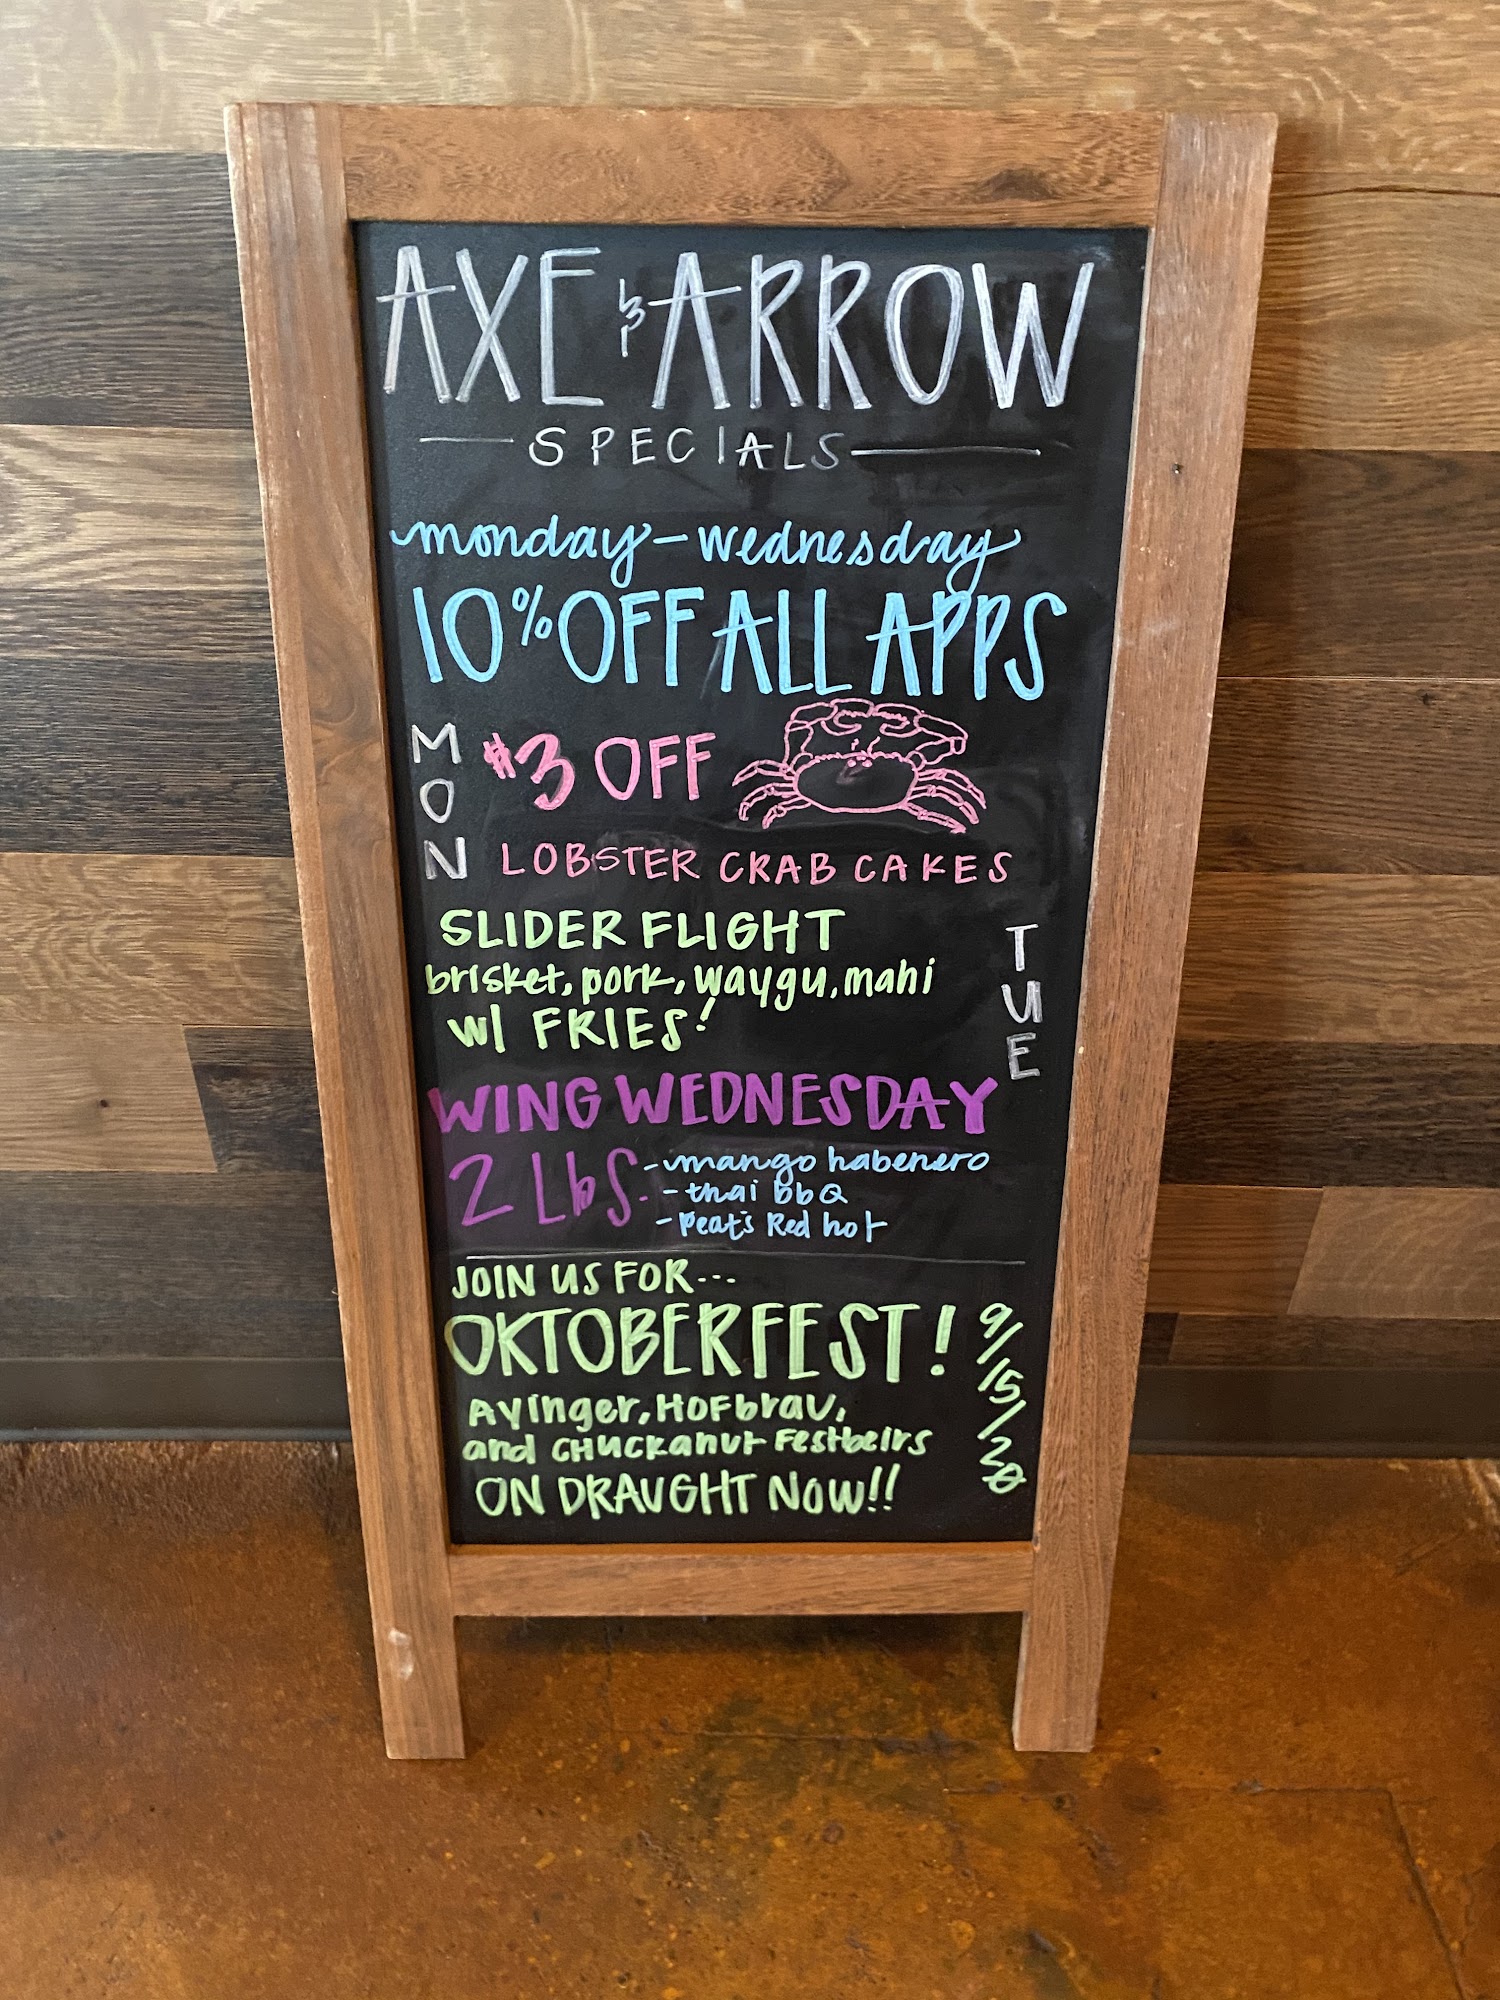 AXE & ARROW
SPECIALS
monday-wednesday
10% OFF ALL APPS
MON
$3 OFF
LOBSTER CRAB CAKES
SLIDER FLIGHT
brisket, pork, waygu, mahi
w/ FRIES!
TUE
WING WEDNESDAY
2 LbS.
-mango habenero
-thai bbQ
-Peat's Red hot
JOIN US FOR...
OKTOBERFEST!
9/15/20
Ayinger, HOFbrau,
and CHuckanut Festbeirs
ON DRAUGHT NOW!!